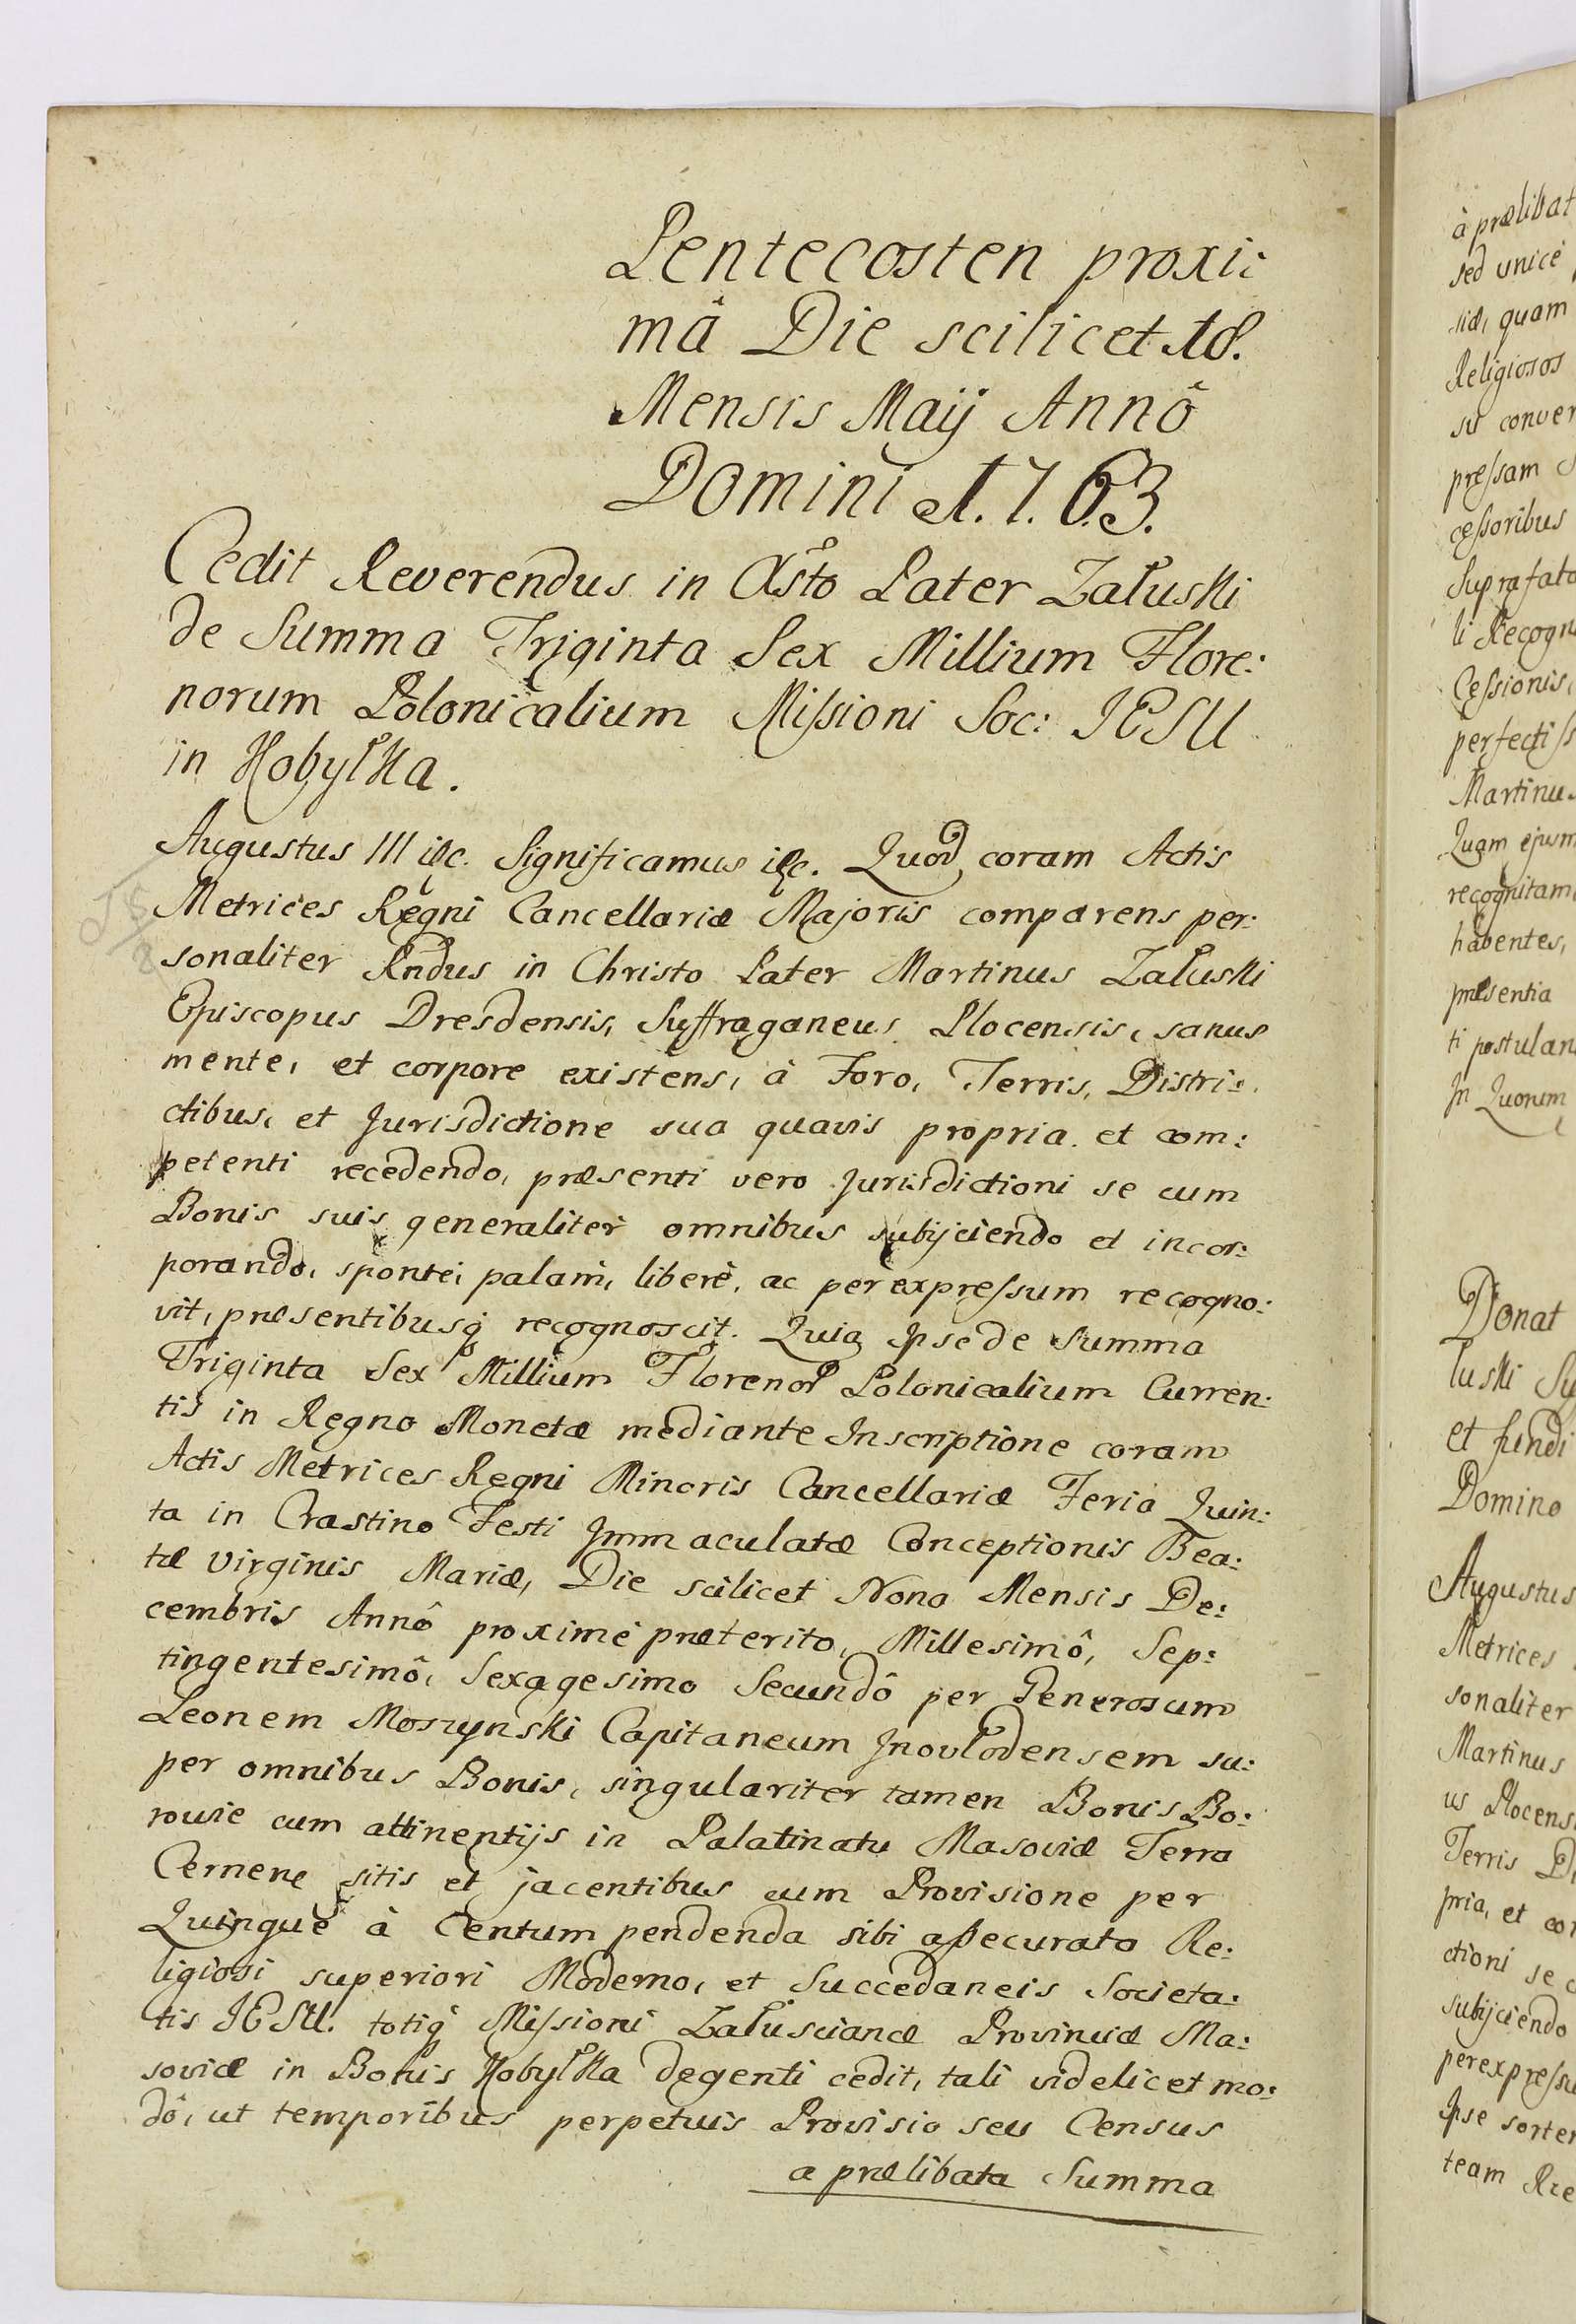 Pentecosten proxi:
mâ Die scilicet 18.
Mensis Maij Annô
Domini 1.7.63.
Cedit Reverendus in Xsto Pater Załuski
de Summa Triginta Sex Millium Flore:
norum Polonicalium Missioni Soc: JESU
in Kobyłka.
Augustus III etc. Significamus etc. Quod coram Actis
Metrices Regni Cancellariæ Majoris comparens per:
sonaliter Rndus in Christo Pater Martinus Załuski
Episcopus Dresdensis, Suffraganeus Plocensis, sanus
mente, et corpore existens, à Foro, Terris, Distri:
ctibus, et Jurisdictione sua quavis propria et com:
petenti recedendo, præsenti vero Jurisdictioni se cum
Bonis suis generaliter omnibus subijciendo et incor:
porando, sponte, palam, liberè, ac per expressum recogno:
vit, præsentibusq recognoscit. Quia Ipse de Summa
Triginta Sex Millium Florenor Polonicalium Curren:
tis in Regno Monetæ mediante Inscriptione coram
Actis Metrices Regni Minoris Cancellariæ Feria Quin:
ta in Crastino Festi Immaculatæ Conceptionis Bea:
tæ Virginis Mariæ, Die scilicet Nona Mensis De:
cembris Annô proximè præterito, Millesimô, Sep:
tingentesimô, Sexagesimo Secundô per Generosum
Leonem Moszynski Capitaneum Inovlodensem su:
per omnibus Bonis, singulariter tamen Bonis Bo:
rowie cum attinentijs in Palatinatu Masoviæ Terra
Cernene sitis et jacentibus cum Provisione per
Quinque à Centum pendenda sibi assecurato Re:
ligiosi superiori Moderno, et Succedaneis Societa:
tis JESU. totiq Missioni Załuscianæ Provinciæ Ma:
soviæ in Bonis Kobyłka degenti cedit, tali videlicet mo:
dô, ut temporibus perpetuis Provisio seu Census
a prælibata Summa
à prælibat
sed unicè
siæ, quam
Religiosos
su conver
pressam
cessoribus
Suprafato
li Recogn
Cessionis,
perfectiss
Martinus
Quam ejusm
recognitam
habentes,
præsentia
ti postulan
In Quorum
Donat
łuski Su
et fundi
Domino
Augustus
Metrices
sonaliter
Martinus
us Plocens
Terris Di
pria, et co
ctioni se c
subijciendo
perexpressu
Ipse sorte
team Rie